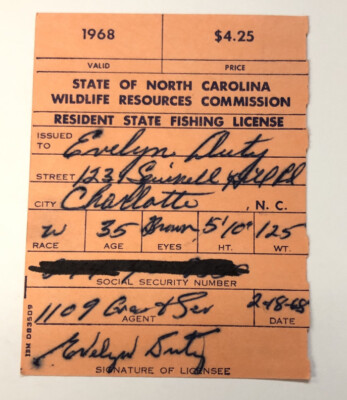 1968 $4.25
VALID PRICE
STATE OF NORTH CAROLINA
WILDLIFE RESOURCES COMMISSION
RESIDENT STATE FISHING LICENSE
ISSUED TO Evelyn Duty
STREET 123 Squirrell Hill Rd
CITY Charlotte, N. C.
W 35 Brown 5'10" 125
RACE AGE EYES HT. WT.
SOCIAL SECURITY NUMBER
1109 2-18-68
AGENT DATE
Evelyn Duty
SIGNATURE OF LICENSEE